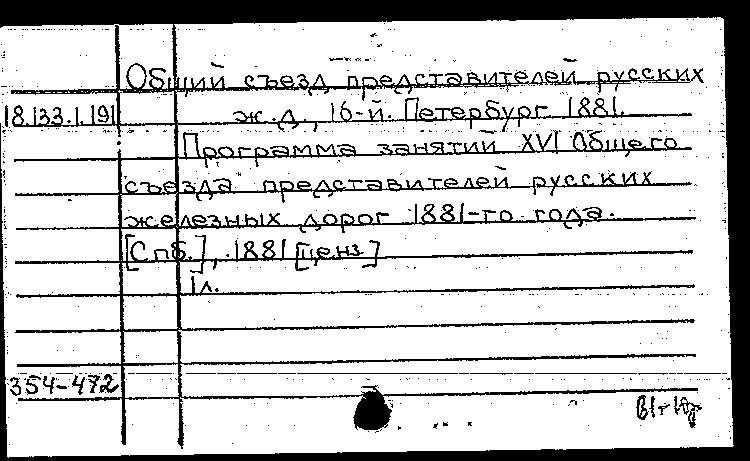 Общий съезд представителей русских
18.133.1.191
ж.д., 16-й. Петербург 1881.
Программа занятий XVI Общего
съезда представителей русских
железных дорог 1881-го года.
[Спб.], 1881 [ценз]
1л.
354-472